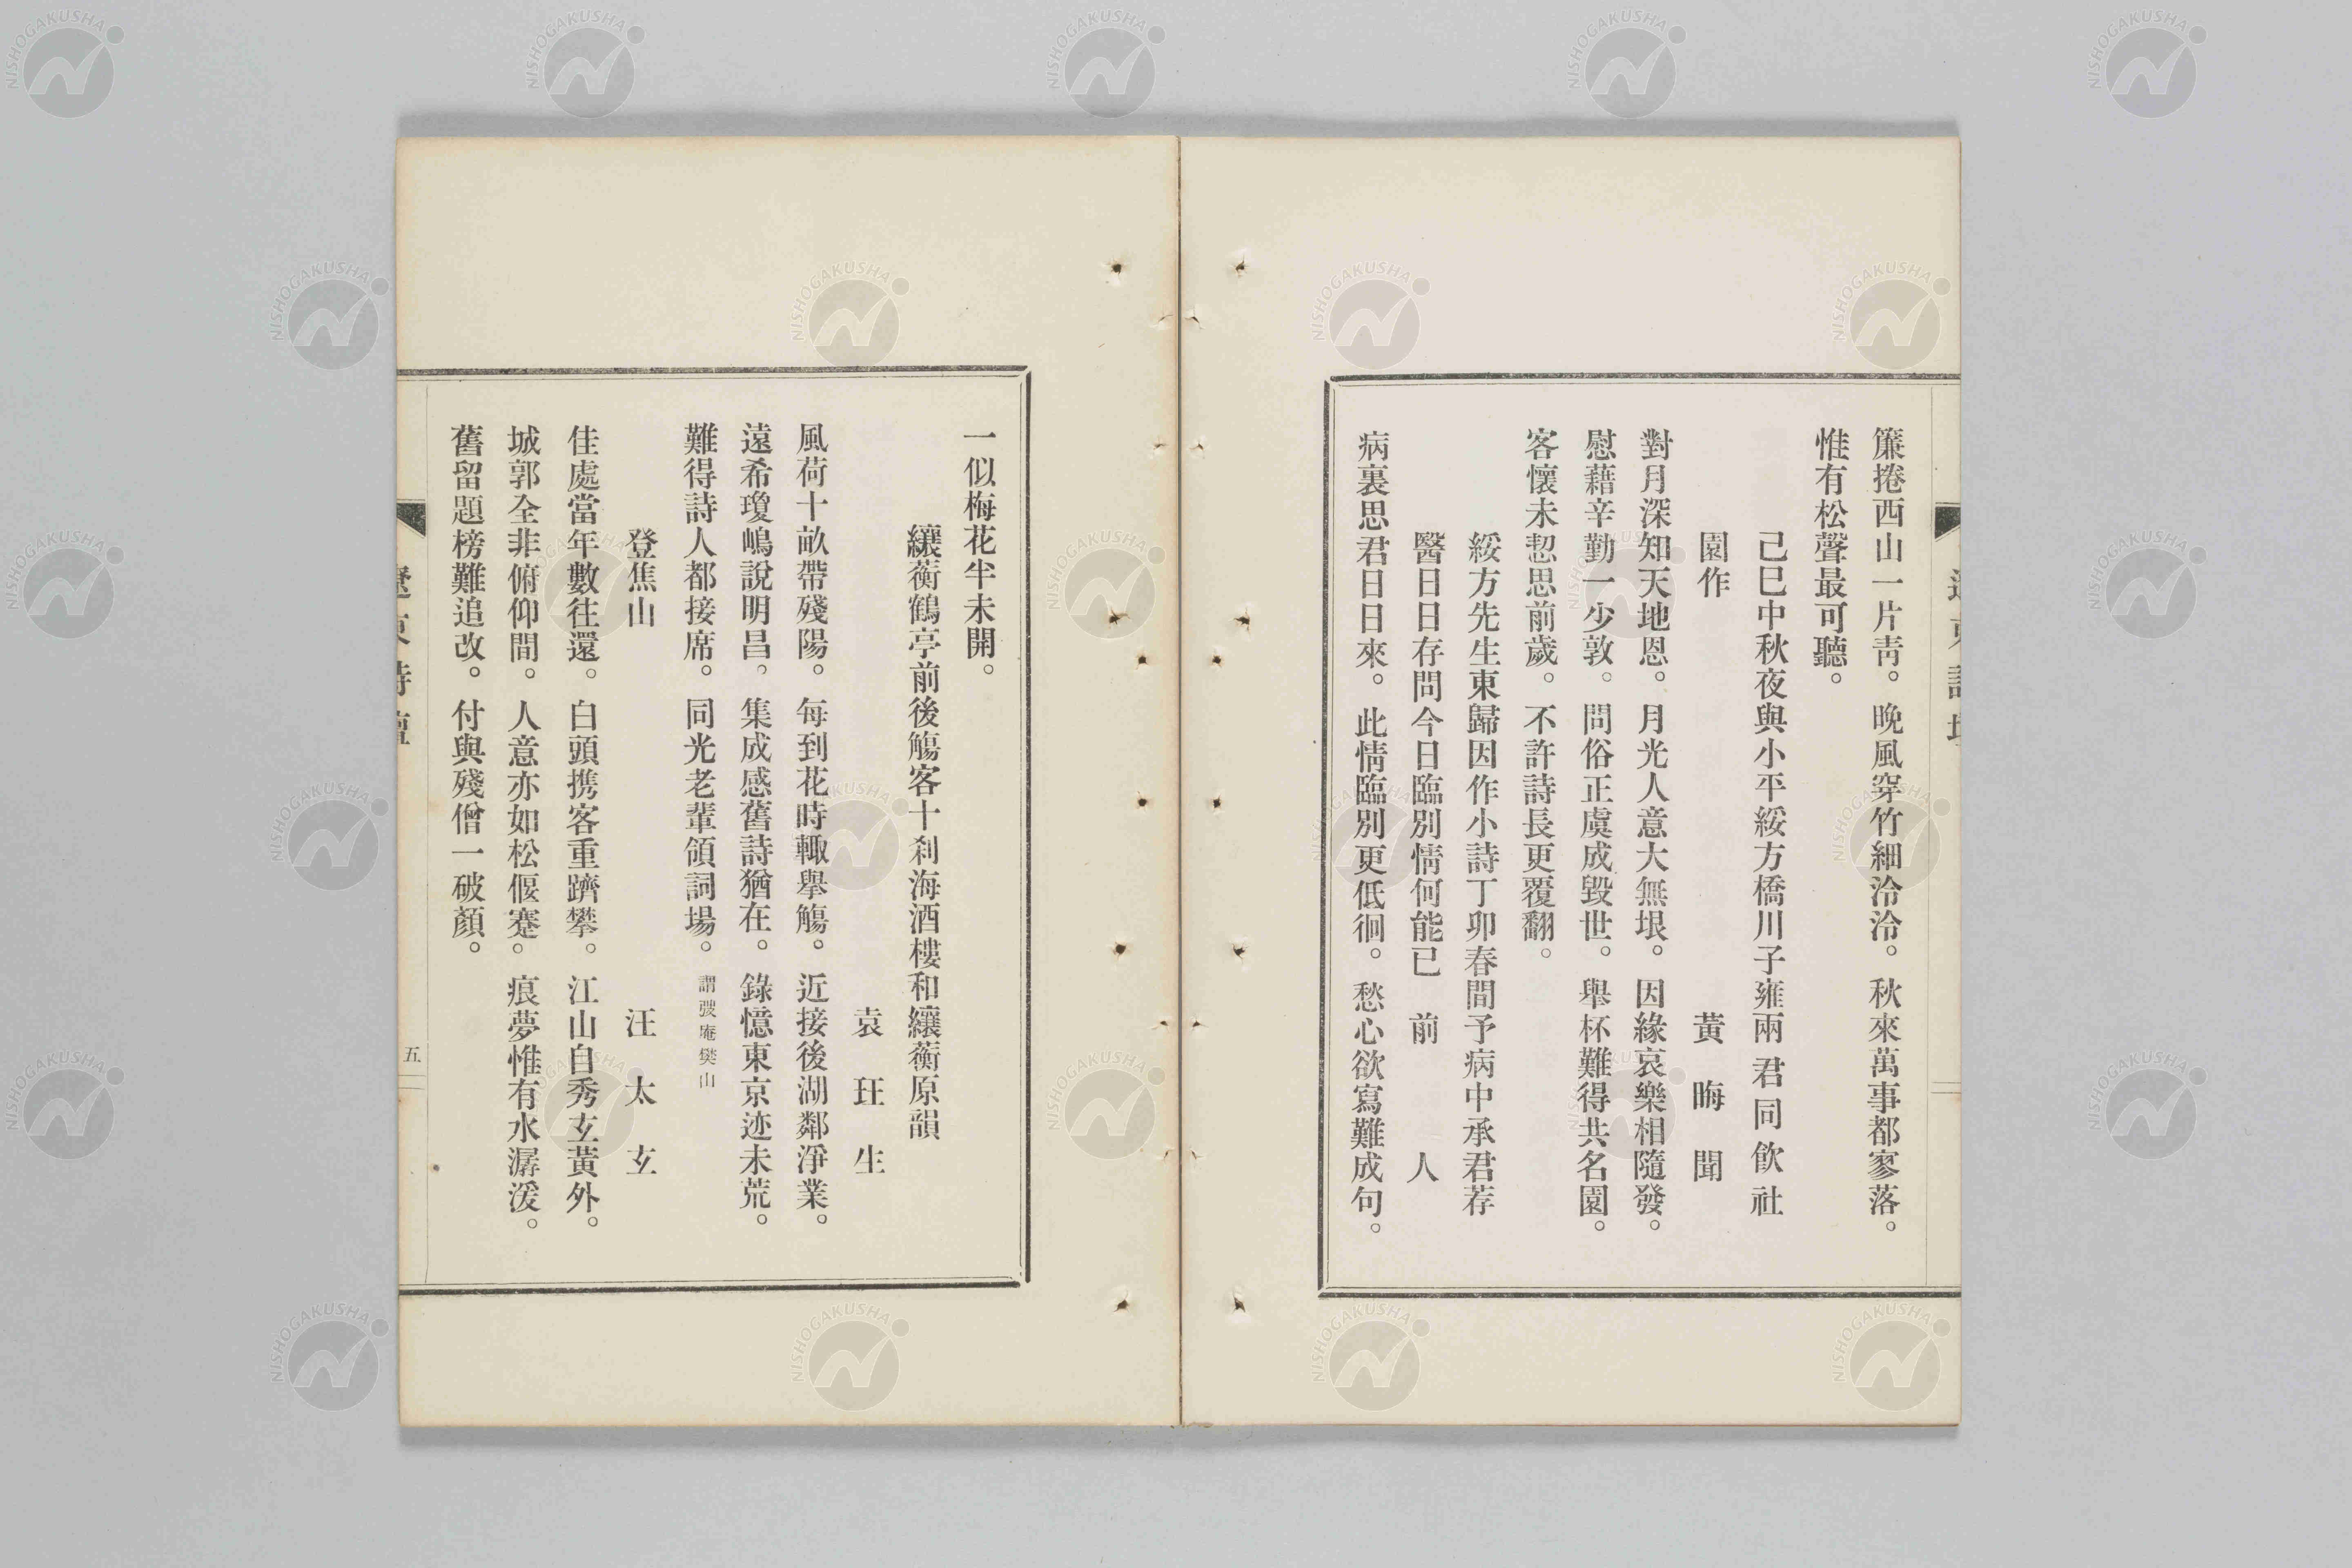 簾捲西山一片靑。晩風穿竹細泠泠。秋來萬事都寥落。
惟有松聲最可聽。
己巳中秋夜與小平綏方橋川子雍兩君同飮社
園作
黃晦聞
對月深知天地恩。月光人意大無垠。因緣哀樂相隨發。
慰藉辛勤一少敦。問俗正虞成毀世。舉杯難得共名園。
客懷未恝思前歲。不許詩長更覆翻。
綏方先生東歸因作小詩丁卯春間予病中承君荐
醫日日存問今日臨別情何能已
前人
病裏思君日日來。此情臨別更低徊。愁心欲寫難成句。
一似梅花半未開。
纕蘅鶴亭前後觴客十刹海酒樓和纕蘅原韻
袁玨生
風荷十畝帶殘陽。每到花時輙舉觴。近接後湖鄰淨業。
遠希瓊嶋說明昌。集成感舊詩猶在。錄憶東京迹未荒。
難得詩人都接席。同光老輩領詞場。謂弢庵樊山
登焦山
汪太玄
佳處當年數往還。白頭携客重躋攀。江山自秀玄黃外。
城郭全非俯仰間。人意亦如松偃蹇。痕夢惟有水潺湲。
舊留題榜難追改。付與殘僧一破顏。
遼東詩壇
五
NISHOGAKUSHA